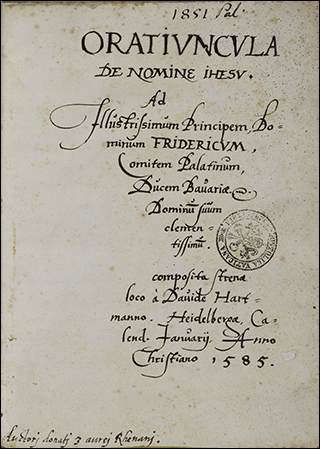 1851 Pal.
ORATIVNCVLA
DE NOMINE IHESV.
Ad
Illustrissimum Principem Do-
minum FRIDERICVM,
Comitem Palatinum,
Ducem Bavariæ
Dominū suum
clemen-
tissimū.
composita strenæ
loco à Davide Hart-
manno. Heidelbergæ, Ca-
lend. Januarij, Anno
Christiano 1585.
VATICANA
Auctori donati 3 aurej Rhenani.